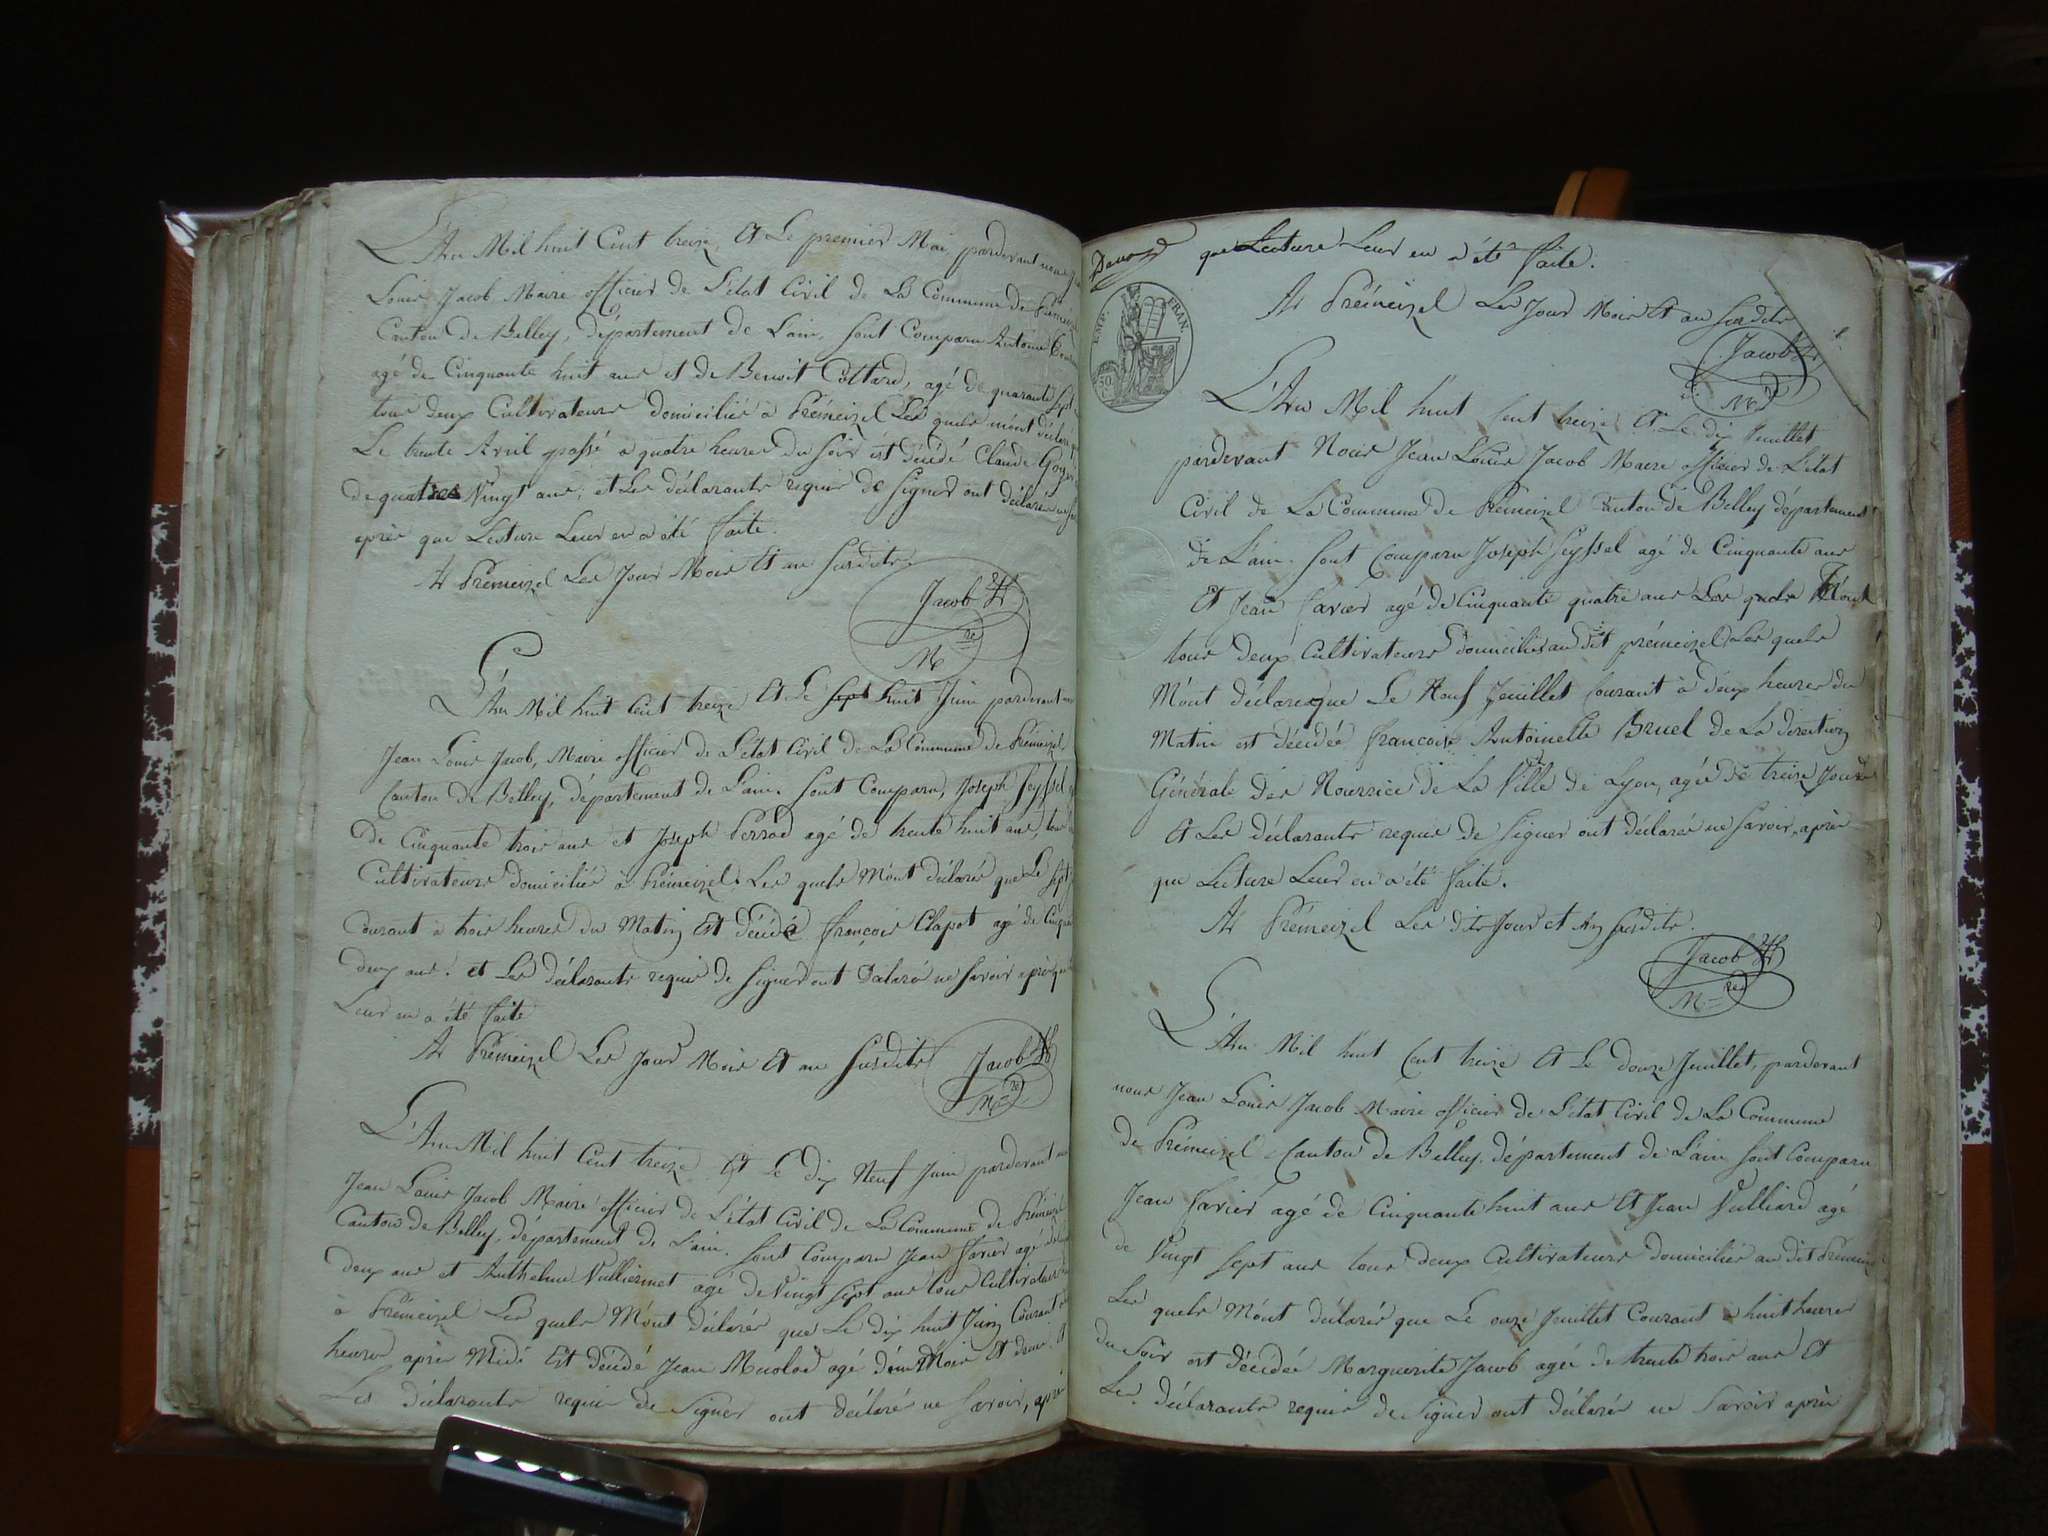 L'An Mil huit Cent treize, Et Le premier Mai pardevant nous
Louis Jacob Maire officier de L'état Civil de La Commune de Prémeizel
Canton de Belley, département de L'ain, Sont Comparu Antoine
agé de Cinquante huit ans et de Benoit Cottard, agé de quarante Sept
tous deux Cultivateurs domicilié à Prémeizel Les quels m'ont déclaré
Le trente Avril passé à quatre heures du Soir est décédé Claude
de quatres Vingt ans; et Les déclarants requis de Signer ont déclaré
après que Lecture Leur en a été faite.
At Prémeizel Les Jour Mois Et an Susdits
Jacob
M re
L'An Mil huit Cent treize Et Le sept huit Juin pardevant
Jean Louis Jacob, Maire officier de L'état Civil de La Commune de Prémeizel
Canton de Belley, département de L'ain. Sont Comparu, Joseph Seyssel
de Cinquante trois ans et Joseph Perrod agé de trente huit ans, tous
Cultivateurs domicilié à Prémeizel. Les quels M'ont déclaré que Le Sept
Courant à trois heures du Matin Est décédé françois Clapot agé de
deux ans. et Les déclarants requis de Signer ont déclaré ne Savoir après
Leur en a été faite
At Prémeizel Les Jour Mois Et an Susdits
Jacob
M re
L'An Mil huit Cent treize Et Le dix Neuf Juin pardevant
Jean Louis Jacob Maire officier de L'état Civil de La Commune de Prémeizel
Canton de Belley, département de L'ain. Sont Comparu Jean Favier agé
deux ans et Anthelme Vulliermet agé de Vingt Sept ans tous Cultivateurs
à Prémeizel Les quels M'ont déclaré que Le dix huit Juin Courant
heures après Midi Est décédé Jean agé d'un Mois Et demi. Et
Les déclarants requis de Signer ont déclaré ne Savoir, après
que Lecture Leur en a été faite.
At Prémeizel Les Jour Mois Et an Susdits
EMP. FRAN.
50
Jacob
M re
L'An Mil huit Cent treize Et Le dix Juillet
pardevant Nous Jean Louis Jacob Maire officier de L'état
Civil de La Commune de Prémeizel Canton de Belley département
de L'ain. Sont Comparu Joseph Seyssel agé de Cinquante ans
Et Jean Favier agé de Cinquante quatre ans Les quels M'ont
tous deux Cultivateurs domiciliés au dit prémeizel Les quels
M'ont déclaré que Le Neuf Jeuillet Courant à deux heures du
Matin est décédée françoise Antoinette Bruel de La direction
Générale des Nourrice de La Ville de Lyon, agée de treize Jours
Et Les déclarants requis de Signer ont déclaré ne Savoir, après
que Lecture Leur en a été faite.
At Prémeizel Les dits Jour et An Susdits.
Jacob
M re
L'An Mil huit Cent treize Et Le douze Juillet, pardevant
nous Jean Louis Jacob Maire officier de L'état Civil de La Commune
de Prémeizel Canton de Belley. département de L'ain Sont Comparu
Jean Favier agé de Cinquante huit ans Et Jean Vulliard agé
de Vingt Sept ans tous deux Cultivateurs domiciliés au dit Prémeizel
Les quels M'ont déclaré que Le onze Juillet Courant à huit heures
du Soir est décédée Marguerite Jacob agée de trente trois ans Et
Les déclarants requis de Signer ont déclaré ne Savoir après